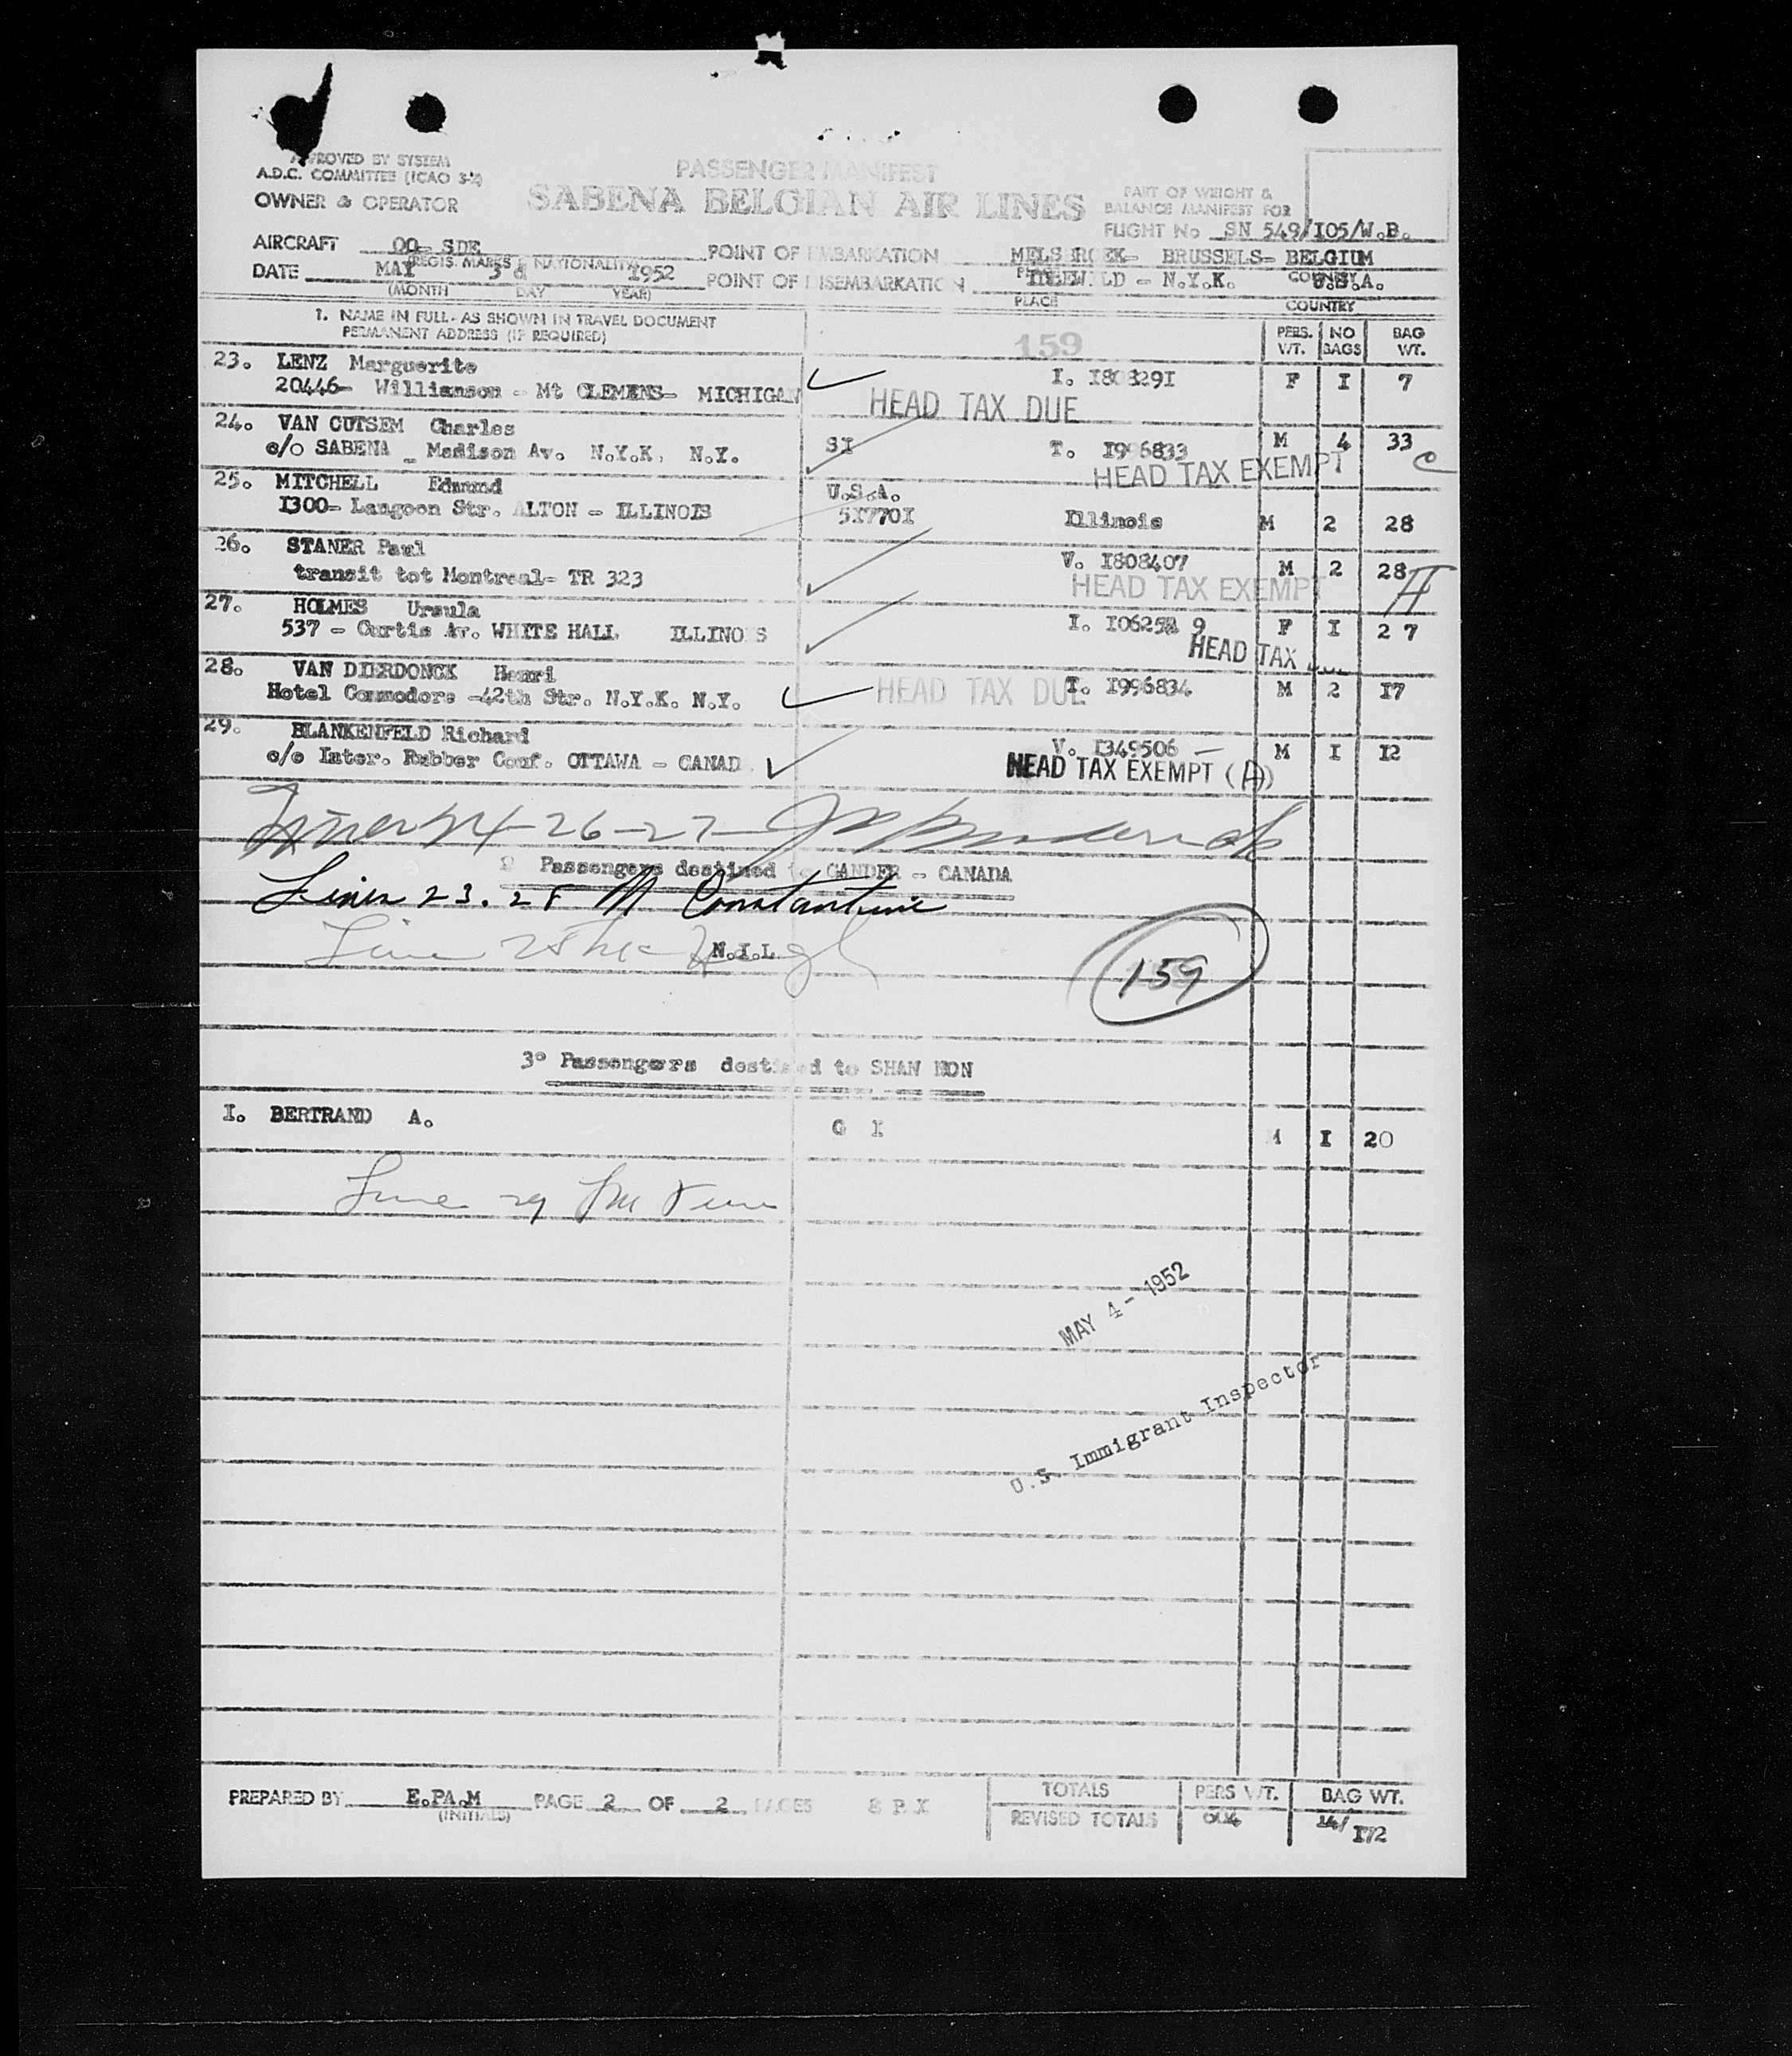 APPROVED BY SYSTEM
A.D.C. COMMITTEE (ICAO 3-2)
OWNER & OPERATOR
PASSENGER MANIFEST
SABENA BELGIAN AIR LINES
PART OF WEIGHT &
BALANCE MANIFEST FOR
FLIGHT No SN 549/I05/W.B.
AIRCRAFT OO- SDE
(REGIS. MARKS & NATIONALITY)
POINT OF EMBARKATION MELSBROEK- BRUSSELS- BELGIUM
PLACE COUNTRY
DATE MAY 3 1952
(MONTH DAY YEAR)
POINT OF DISEMBARKATION IDLEWILD - N.Y.K. U.S.A.
PLACE COUNTRY
1. NAME IN FULL. AS SHOWN IN TRAVEL DOCUMENT
PERMANENT ADDRESS (IF REQUIRED)
159
PERS. WT. NO BAGS BAG WT.
23. LENZ Marguerite
20446- Willianson - Mt CLEMENS- MICHIGAN I. I80829I F I 7
HEAD TAX DUE
24. VAN CUTSEM Charles
c/o SABENA - Madison Av. N.Y.K. N.Y. SI T. I996833 M 4 33 C
HEAD TAX EXEMPT
25. MITCHELL Edmund U.S.A.
I300- Langoon Str. ALTON - ILLINOIS 5I770I Illinois M 2 28
26. STANER Paul V. I808407 M 2 28
transit tot Montreal- TR 323
HEAD TAX EXEMPT H
27. HOLMES Ursula
537 - Curtis Av. WHITE HALL ILLINOIS I. I0625 9 F I 2 7
HEAD TAX
28. VAN DIERDONCK Henri
Hotel Commodore -42th Str. N.Y.K. N.Y. HEAD TAX DUE T. I996834 M 2 I7
29. BLANKENFELD Richard
c/o Inter. Rubber Conf. OTTAWA - CANAD V. I349506 - M I I2
HEAD TAX EXEMPT (A)
Lines 24-26-27-
Passengers destined GANDER - CANADA
Lines 23. 28 M Constantine
Line 25
N.I.L
159
3° Passengers destined to SHAN NON
I. BERTRAND A. G I M I 20
Line 29
MAY 4 - 1952
U.S. Immigrant Inspector
PREPARED BY E.PA.M
(INITIALS)
PAGE 2 OF 2 PAGES
TOTALS PERS WT. BAG WT.
REVISED TOTALS 14/ I72